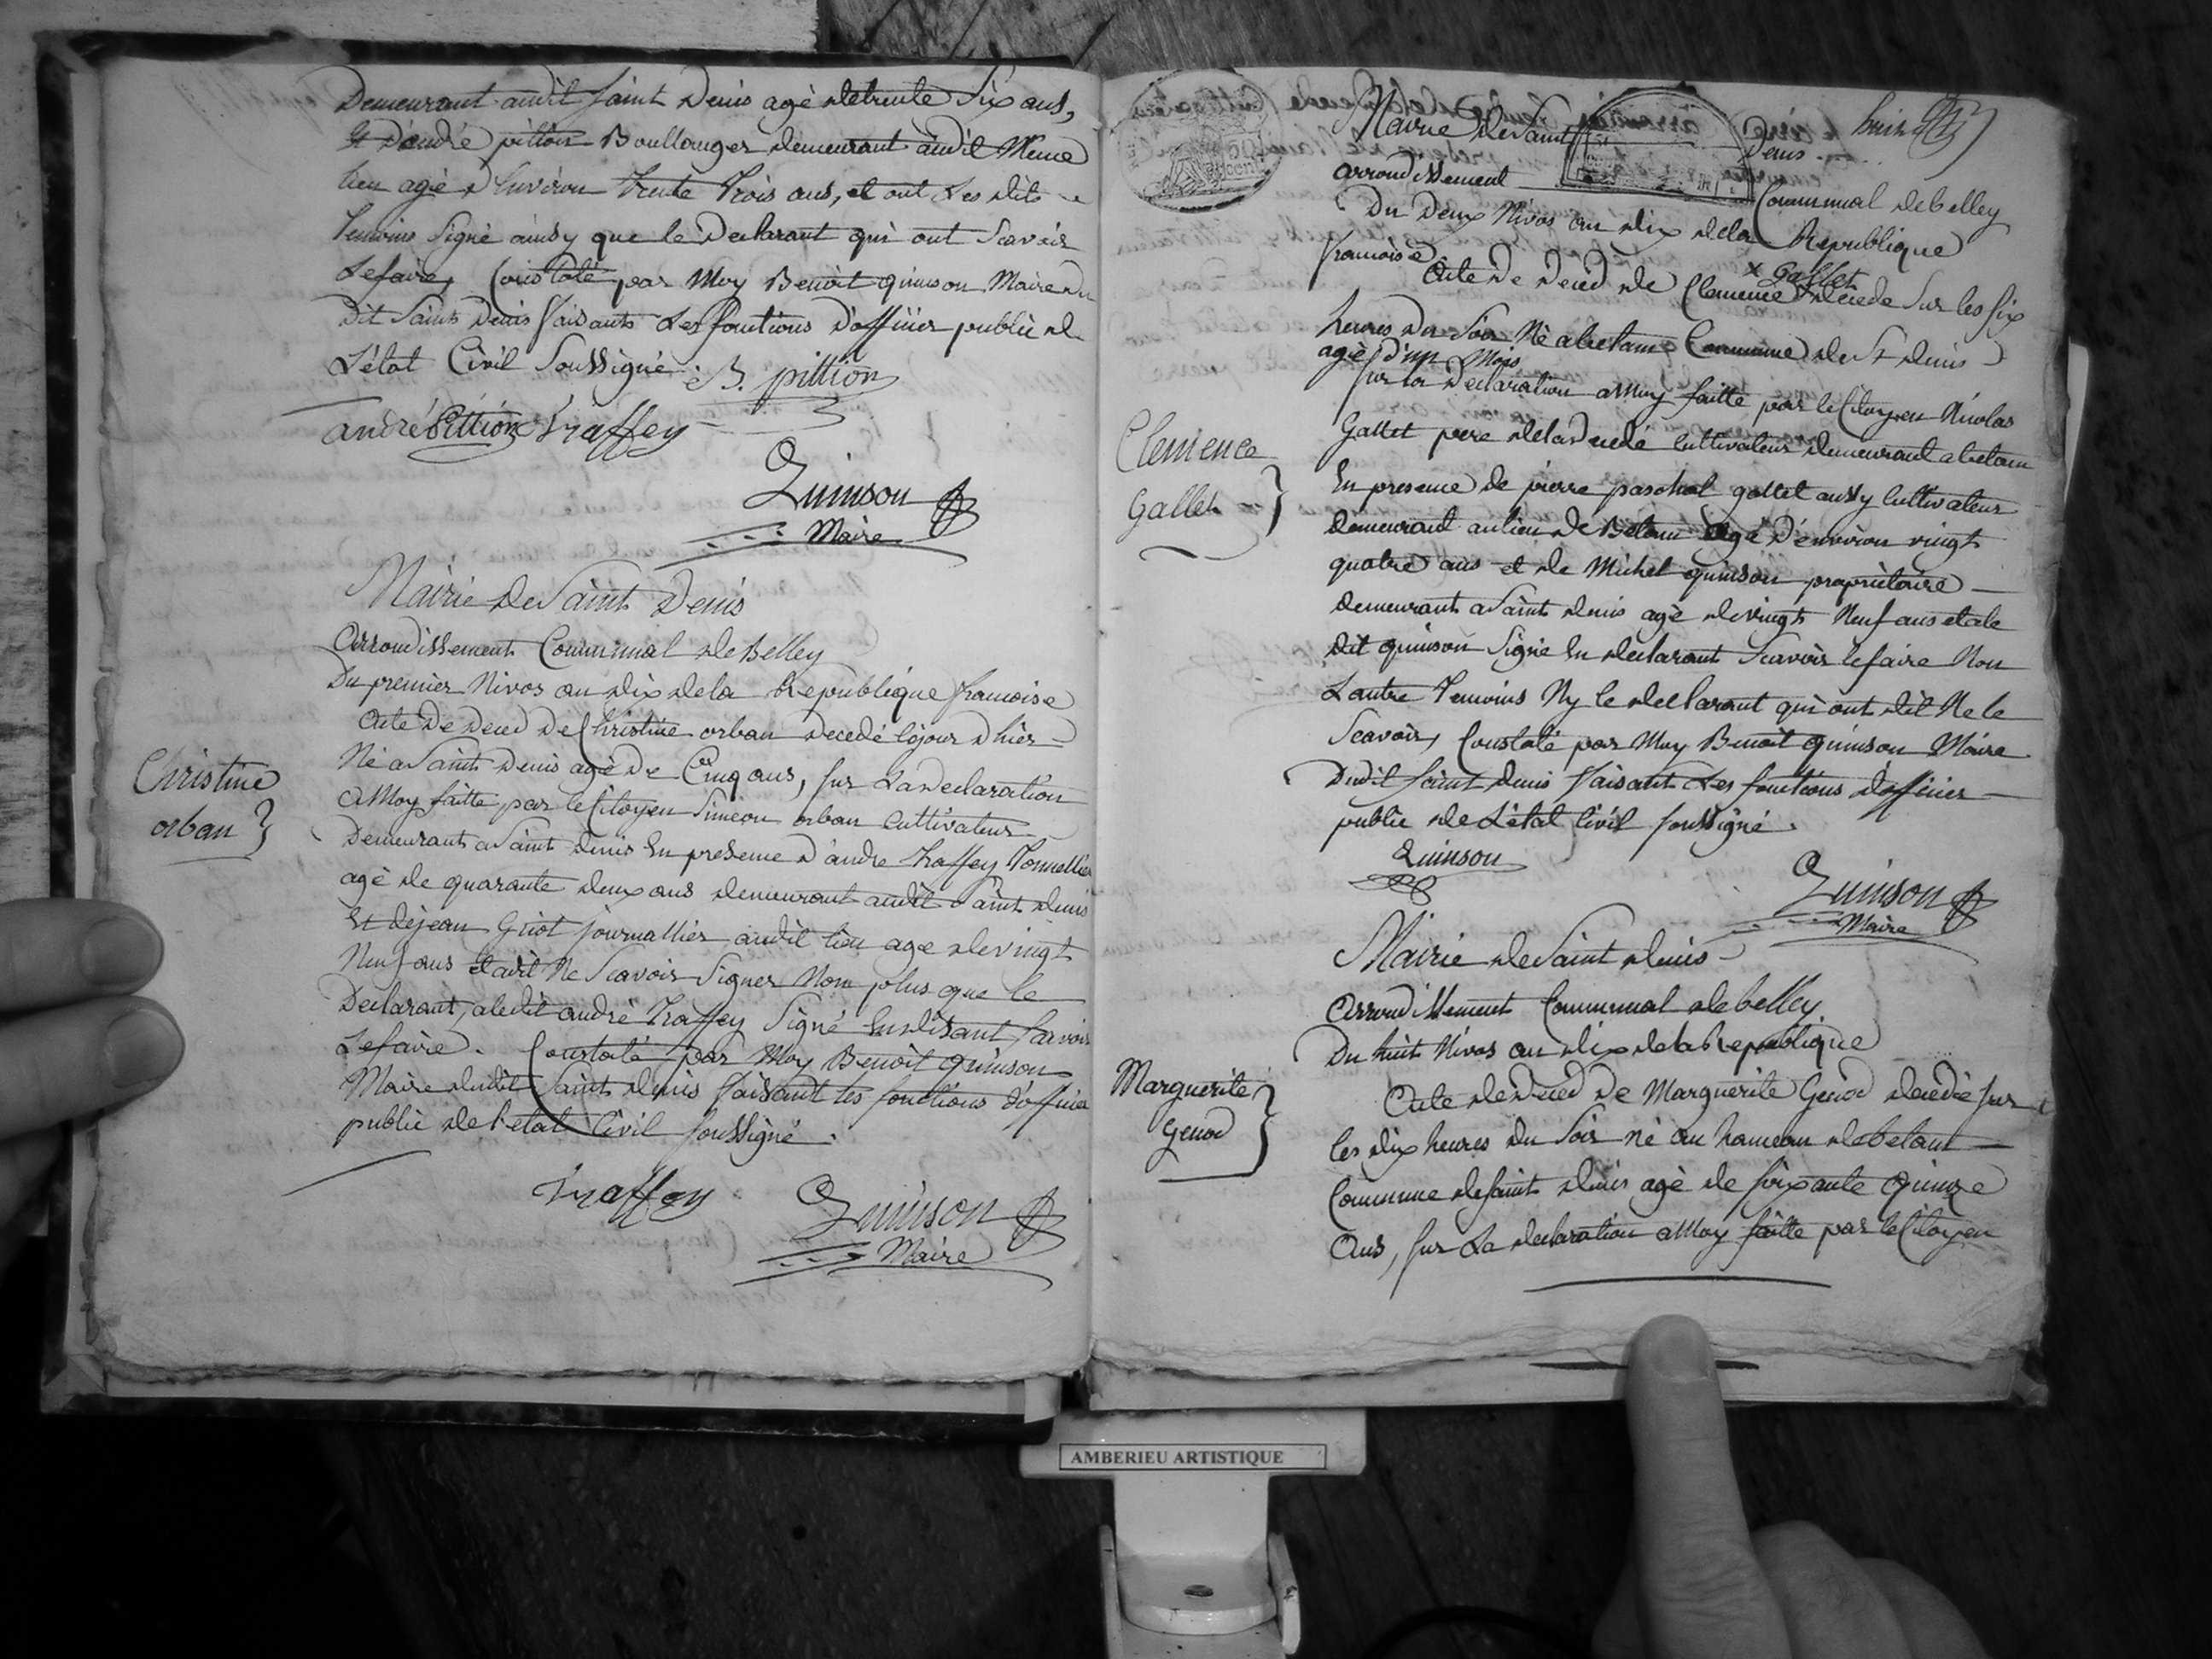 Demeurant audit Saint Denis agé de trente Six ans,
Et d'andré pittion Boullanger demeurant audit Meme
lieu agé d'Environ trente trois ans, et ont Les dits
temoins Signé ainsy que le Declarant qui ont Scavoir
Lefaire, Constaté par Moy Benoit quinson Maire du
Dit Saint Denis faisants Les fonctions d'officier public de
L'état Civil Soussigné.
B. pittion
andré Pittion Traffey
Quinson
Maire
Mairie de Saint Denis
Arrondissement Communal de Belley
Du premier Nivos an dix de la Republique francoise
Christine
orban
Acte De deced De Christine orban decedé le jour d'hier
Né a Saint Denis agé De Cinq ans, sur La declaration
a Moy faitte par le Citoyen Simeon orban Cultivateur
Demeurant a Saint denis En presence d'andre traffey Tonnellier
agé de quarante deux ans demeurant audit Saint denis
Et de jean Griot journallier audit lieu age de vingt
Neuf ans et a dit Ne Scavoir Signer Non plus que le
Declarant, a ledit andré Traffey Signé En disant Scavoir
Lefaire. Constaté par Moy Benoit quinson
Maire dudit Saint denis faisant les fonctions d'officier
public de l'etat Civil soussigné.
Traffey
Quinson
Maire
Mairie de Saint Denis
huit
arrondissement Communal de belley
Du Deux Nivos an dix de la Republique
francoise
Acte De deced de Clemence x Gallet decede Sur les six
heures du Soir Né a betant Commune de St denis
agé d'un Mois
Sur la declaration a Moy faitte par le Citoyen Nicolas
Clemence
Gallet
Gallet pere de la decedé Cultivateur demeurant a betant
En presence de pierre paschal gallet aussy Cultivateur
demeurant au lieu de Betant agé d'environ vingt
quatre ans et de Michel quinson proprietaire
demeurant a Saint denis agé de vingt Neuf ans et a le
dit quinson Signé En declarant Scavoir lefaire Non
L'autre temoins Ny le declarant qui ont dit Ne le
Scavoir, Constaté par Moy Benoit quinson Maire
Dudit Saint denis faisant Les fonctions d'officier
public de L'état Civil soussigné.
Quinson
Quinson
Maire
Mairie de Saint denis
Arrondissement Communal de belley
Du huit Nivos an dix de la Republique
Marguerite
Genod
Acte de deced De Marguerite Genod decedée sur
les dix heures du Soir né au hameau de betant
Commune de saint denis agé de soixante quinze
Ans, sur La declaration a Moy faitte par le Citoyen
AMBERIEU ARTISTIQUE